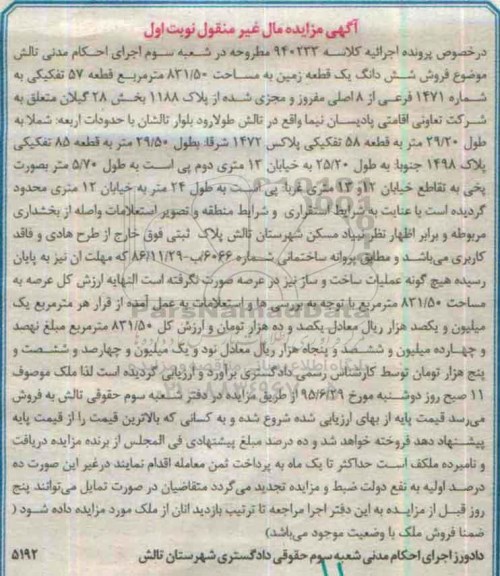 آگهی مزایده مال غیر منقول نوبت اول
درخصوص پرونده اجرائیه کلاسه ۹۴۰۲۳۳ مطروحه در شعبه سوم اجرای احکام مدنی تالش
موضوع فروش شش دانگ یک قطعه زمین به مساحت ۸۳۱/۵۰ مترمربع قطعه ۵۷ تفکیکی به
شماره ۱۴۷۱ فرعی از ۸ اصلی مفروز و مجزی شده از پلاک ۱۱۸۸ بخش ۲۸ گیلان متعلق به
شرکت تعاونی اقامتی پادیسان نیما واقع در تالش طولارود بلوار تالشان با حدودات اربعه: شمالا به
طول ۲۹/۲۰ متر به قطعه ۵۸ تفکیکی پلاکس ۱۴۷۲ شرقا: بطول ۲۹/۵۰ متر به قطعه ۸۵ تفکیکی
پلاک ۱۴۹۸ جنوبا: به طول ۲۵/۲۰ به خیابان ۱۳ متری دوم پی است به طول ۵/۷۰ متر بصورت
پخی به تقاطع خیابان ۱۲و ۱۳ متری غربا: پی است به طول ۲۴ متر به خیابان ۱۲ متری محدود
گردیده است با عنایت به شرایط استقراری و شرایط منطقه و تصویر استعلامات واصله از بخشداری
مربوطه و برابر اظهار نظر بنیاد مسکن شهرستان تالش پلاک ثبتی فوق خارج از طرح هادی و فاقد
کاربری می‌باشد و مطابق پروانه ساختمانی شماره ۶۰۶۶/ب-۸۶/۱۱/۲۹ که مهلت آن نیز به پایان
رسیده هیچ گونه عملیات ساخت و ساز نیز در عرصه صورت نگرفته است النهایه ارزش کل عرصه به
مساحت ۸۳۱/۵۰ مترمربع با توجه به بررسی ها و استعلامات به عمل آمده از قرار هر مترمربع یک
میلیون و یکصد هزار ریال معادل یکصد و ده هزار تومان و ارزش کل ۸۳۱/۵۰ مترمربع مبلغ نهصد
و چهارده میلیون و ششصد و پنجاه هزار ریال معادل نود و یک میلیون و چهارصد و شصت و
پنج هزار تومان توسط کارشناس رسمی دادگستری برآورد و ارزیابی گردیده است لذا ملک موصوف
۱۱ صبح روز دوشنبه مورخ ۹۵/۶/۲۹ از طریق مزایده در دفتر شعبه سوم حقوقی تالش به فروش
می‌رسد قیمت پایه از بهای ارزیابی شده شروع شده و به کسانی که بالاترین قیمت را از قیمت پایه
پیشنهاد دهد فروخته خواهد شد و ده درصد مبلغ پیشنهادی فی المجلس از برنده مزایده دریافت
و نامبرده ملکف است حداکثر تا یک ماه به پرداخت ثمن معامله اقدام نمایند درغیر این صورت ده
درصد اولیه به نفع دولت ضبط و مزایده تجدید می‌گردد متقاضیان در صورت تمایل می‌توانند پنج
روز قبل از مزایده به این دفتر اجرا مراجعه تا ترتیب بازدید انان از ملک مورد مزایده داده شود (
ضمنا فروش ملک با وضعیت موجود می‌باشد)
دادورز اجرای احکام مدنی شعبه سوم حقوقی دادگستری شهرستان تالش ۵۱۹۲
ParsNamadData